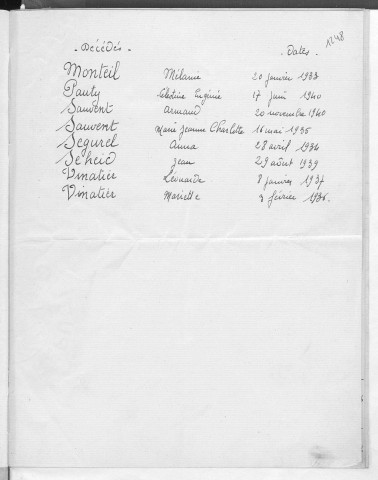 1248
- Décédés - - Dates -
Monteil Mélanie 20 janvier 1933
Pauty Célestine Eugénie 17 juin 1940
Sauvent Armand 20 novembre 1940
Sauvent Marie Jeanne Charlotte 16 mai 1935
Segurel Anna 28 avril 1934
Seheid Jean 29 août 1939
Vinatier Léonarde 8 janvier 1937
Vinatier Mariette 3 février 1936.